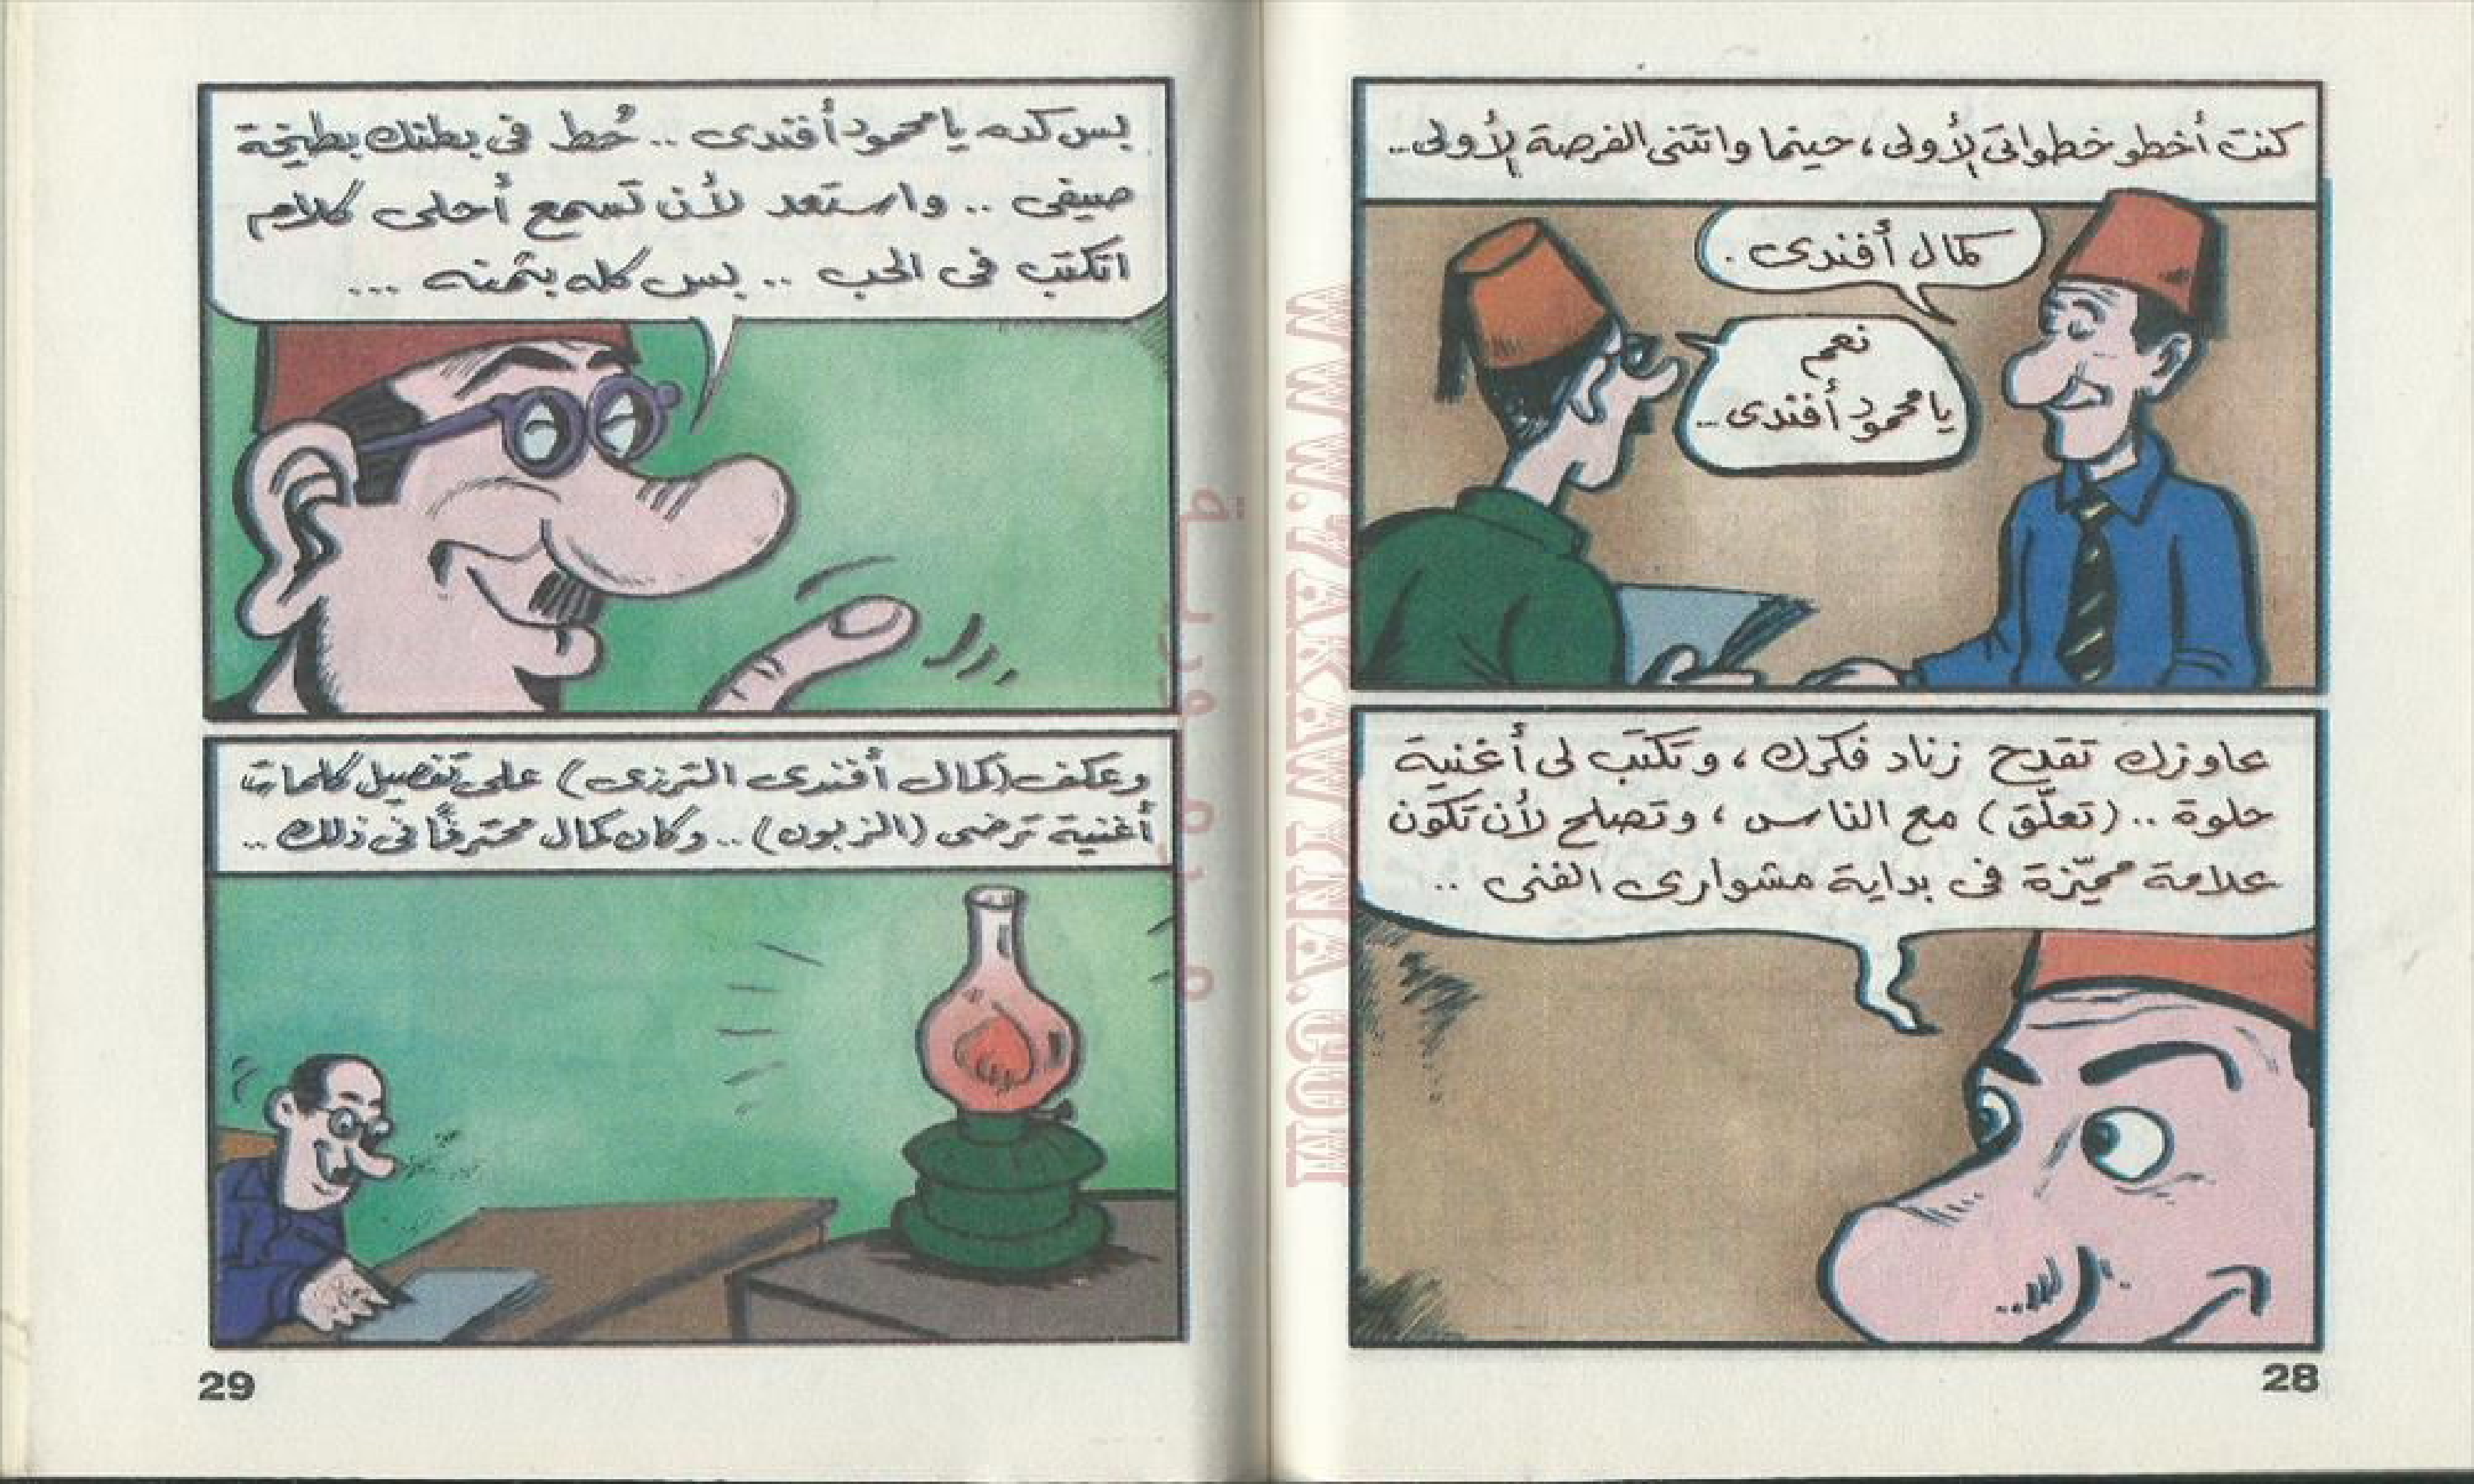 كنت أخطو خطواتى الأولى، حينما واتتنى الفرصة الأولى..
كمال أفندى.
نعم
يا محمود أفندى...
عاوزك تقدح زناد فكرك، وتكتب لى أغنية
حلوة.. (تعلّق) مع الناس، وتصلح لأن تكون
علامة مميّزة فى بداية مشوارى الفنى..
28
بس كده يا محمود أفندى.. حُط فى بطنك بطيخة
صيفى.. واستعد لأن تسمع أحلى كلام
اتكتب فى الحب.. بس كله بثمنه...
وعكف (كمال أفندى الترزى) على تفصيل كلمات
أغنية ترضى (الزبون).. وكان كمال محترفًا فى ذلك..
29